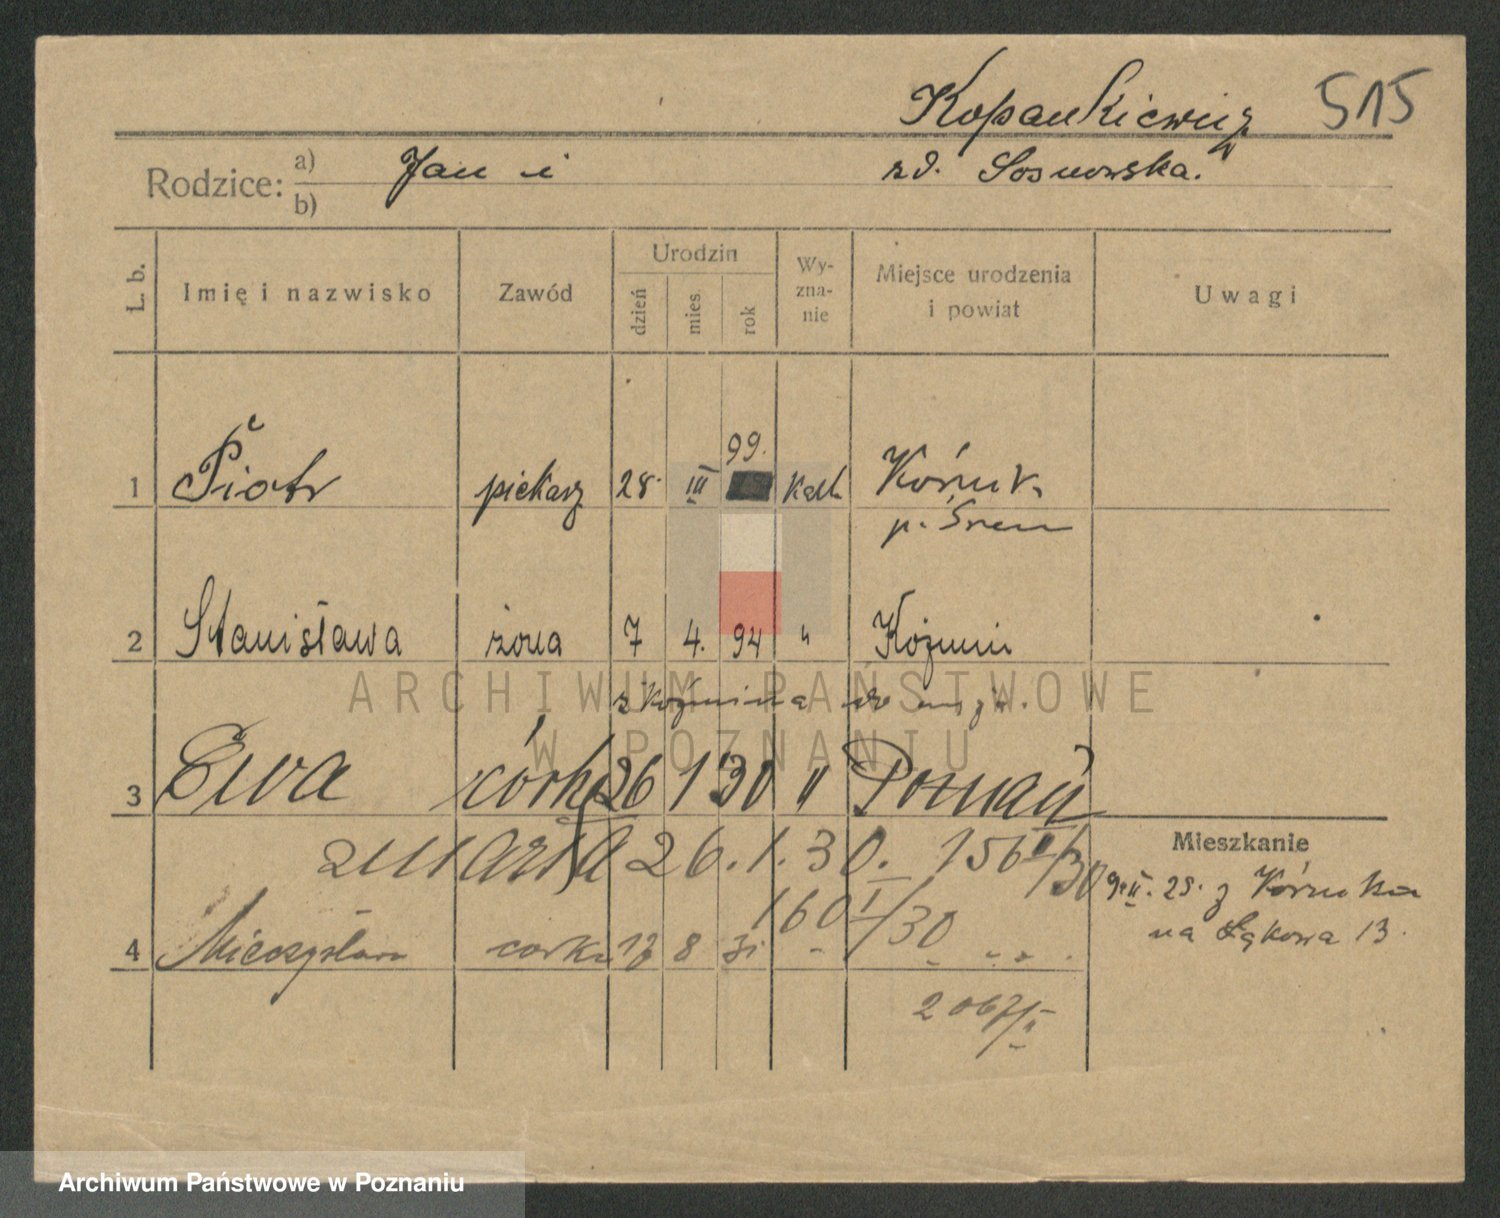 Kopankiewicz 515
Rodzice: a) Jan i zd. Sosnowska.
b)
L. b. Imię i nazwisko Zawód Urodzin Wy-zna-nie Miejsce urodzenia i powiat Uwagi
dzień mies. rok
99.
1 Piotr piekarz 28 III kath Kórnik
p. Śrem
2 Stanisława żona 7 4. 94 " Koźmin
z Koźmina do
3 Ewa córka 26 1 30 " Poznań
zmarła 26.1.30. 156 II/30
Mieszkanie
160 I/30
9.II.28. z Kórnika
na Łąkowa 13.
4 Mieczysława corka 8 31
2067/II
ARCHIWUM PAŃSTWOWE
W POZNANIU
Archiwum Państwowe w Poznaniu